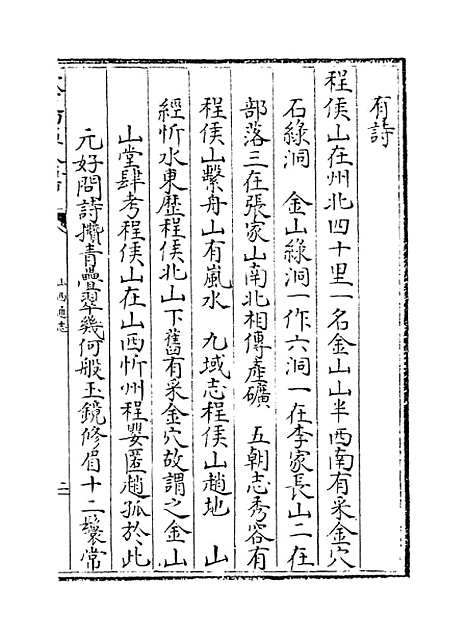 有詩
程侯山在州北四十里一名金山山半西南有采金穴
石綠洞　金山綠洞一作六洞一在李家長山二在
部落三在張家山南北相傳產礦　五朝志秀容有
程侯山繫舟山有嵐水　九域志程侯山趙地　山
經忻水東歷程侯北山下舊有采金穴故謂之金山
山堂肆考程侯山在山西忻州程嬰匿趙孤於此
元好問詩攢青疊翠幾何般玉鏡修眉十二鬟常
山西通志